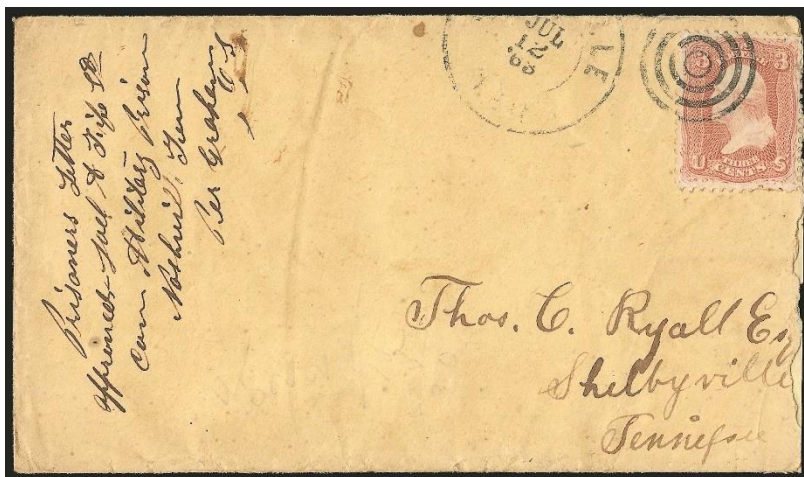 Prisoners Letter
approved - Joel A Fife
Com Military Prison
Nashvil Tenn
Per Graham
JUL
12
63
LLE
3
U S
CENTS
Thos. C. Ryall Esq
Shelbyville
Tennessee